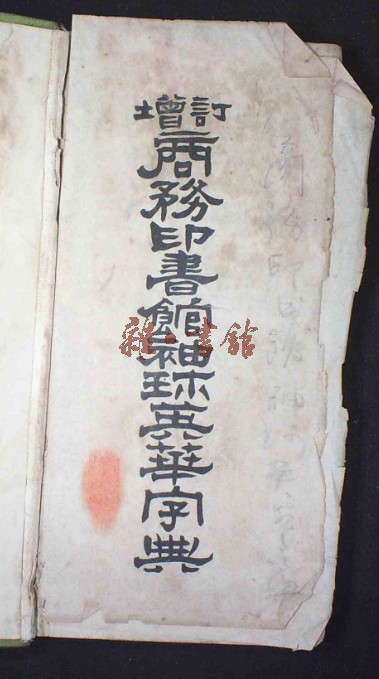 增訂
商務印書館袖珎英華字典
雜·書館